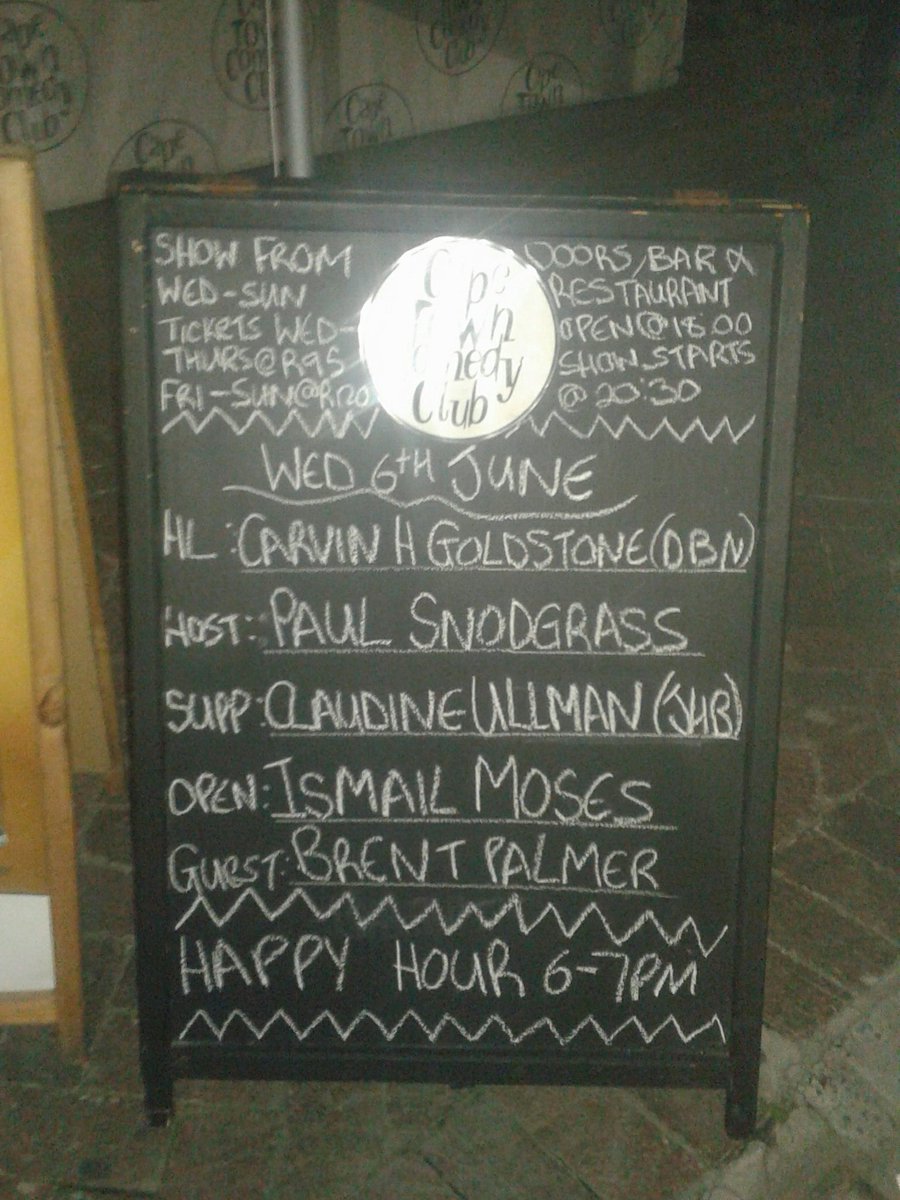 Cape
Town
Comedy
Club
Cape
Town
Comedy
Club
Cape
Town
Cape
Town
Cape
SHOW FROM
WED-SUN
TICKETS WED-
THURS@R95
FRI-SUN@R120
Cape
Town
Comedy
Club
DOORS, BAR &
RESTAURANT
OPEN@18:00
SHOW STARTS
@ 20:30
WED 6TH JUNE
HL: CARVIN H GOLDSTONE (DBN)
HOST: PAUL SNODGRASS
SUPP: CLAUDINE ULLMAN (JHB)
OPEN: ISMAIL MOSES
GUEST: BRENT PALMER
HAPPY HOUR 6-7PM